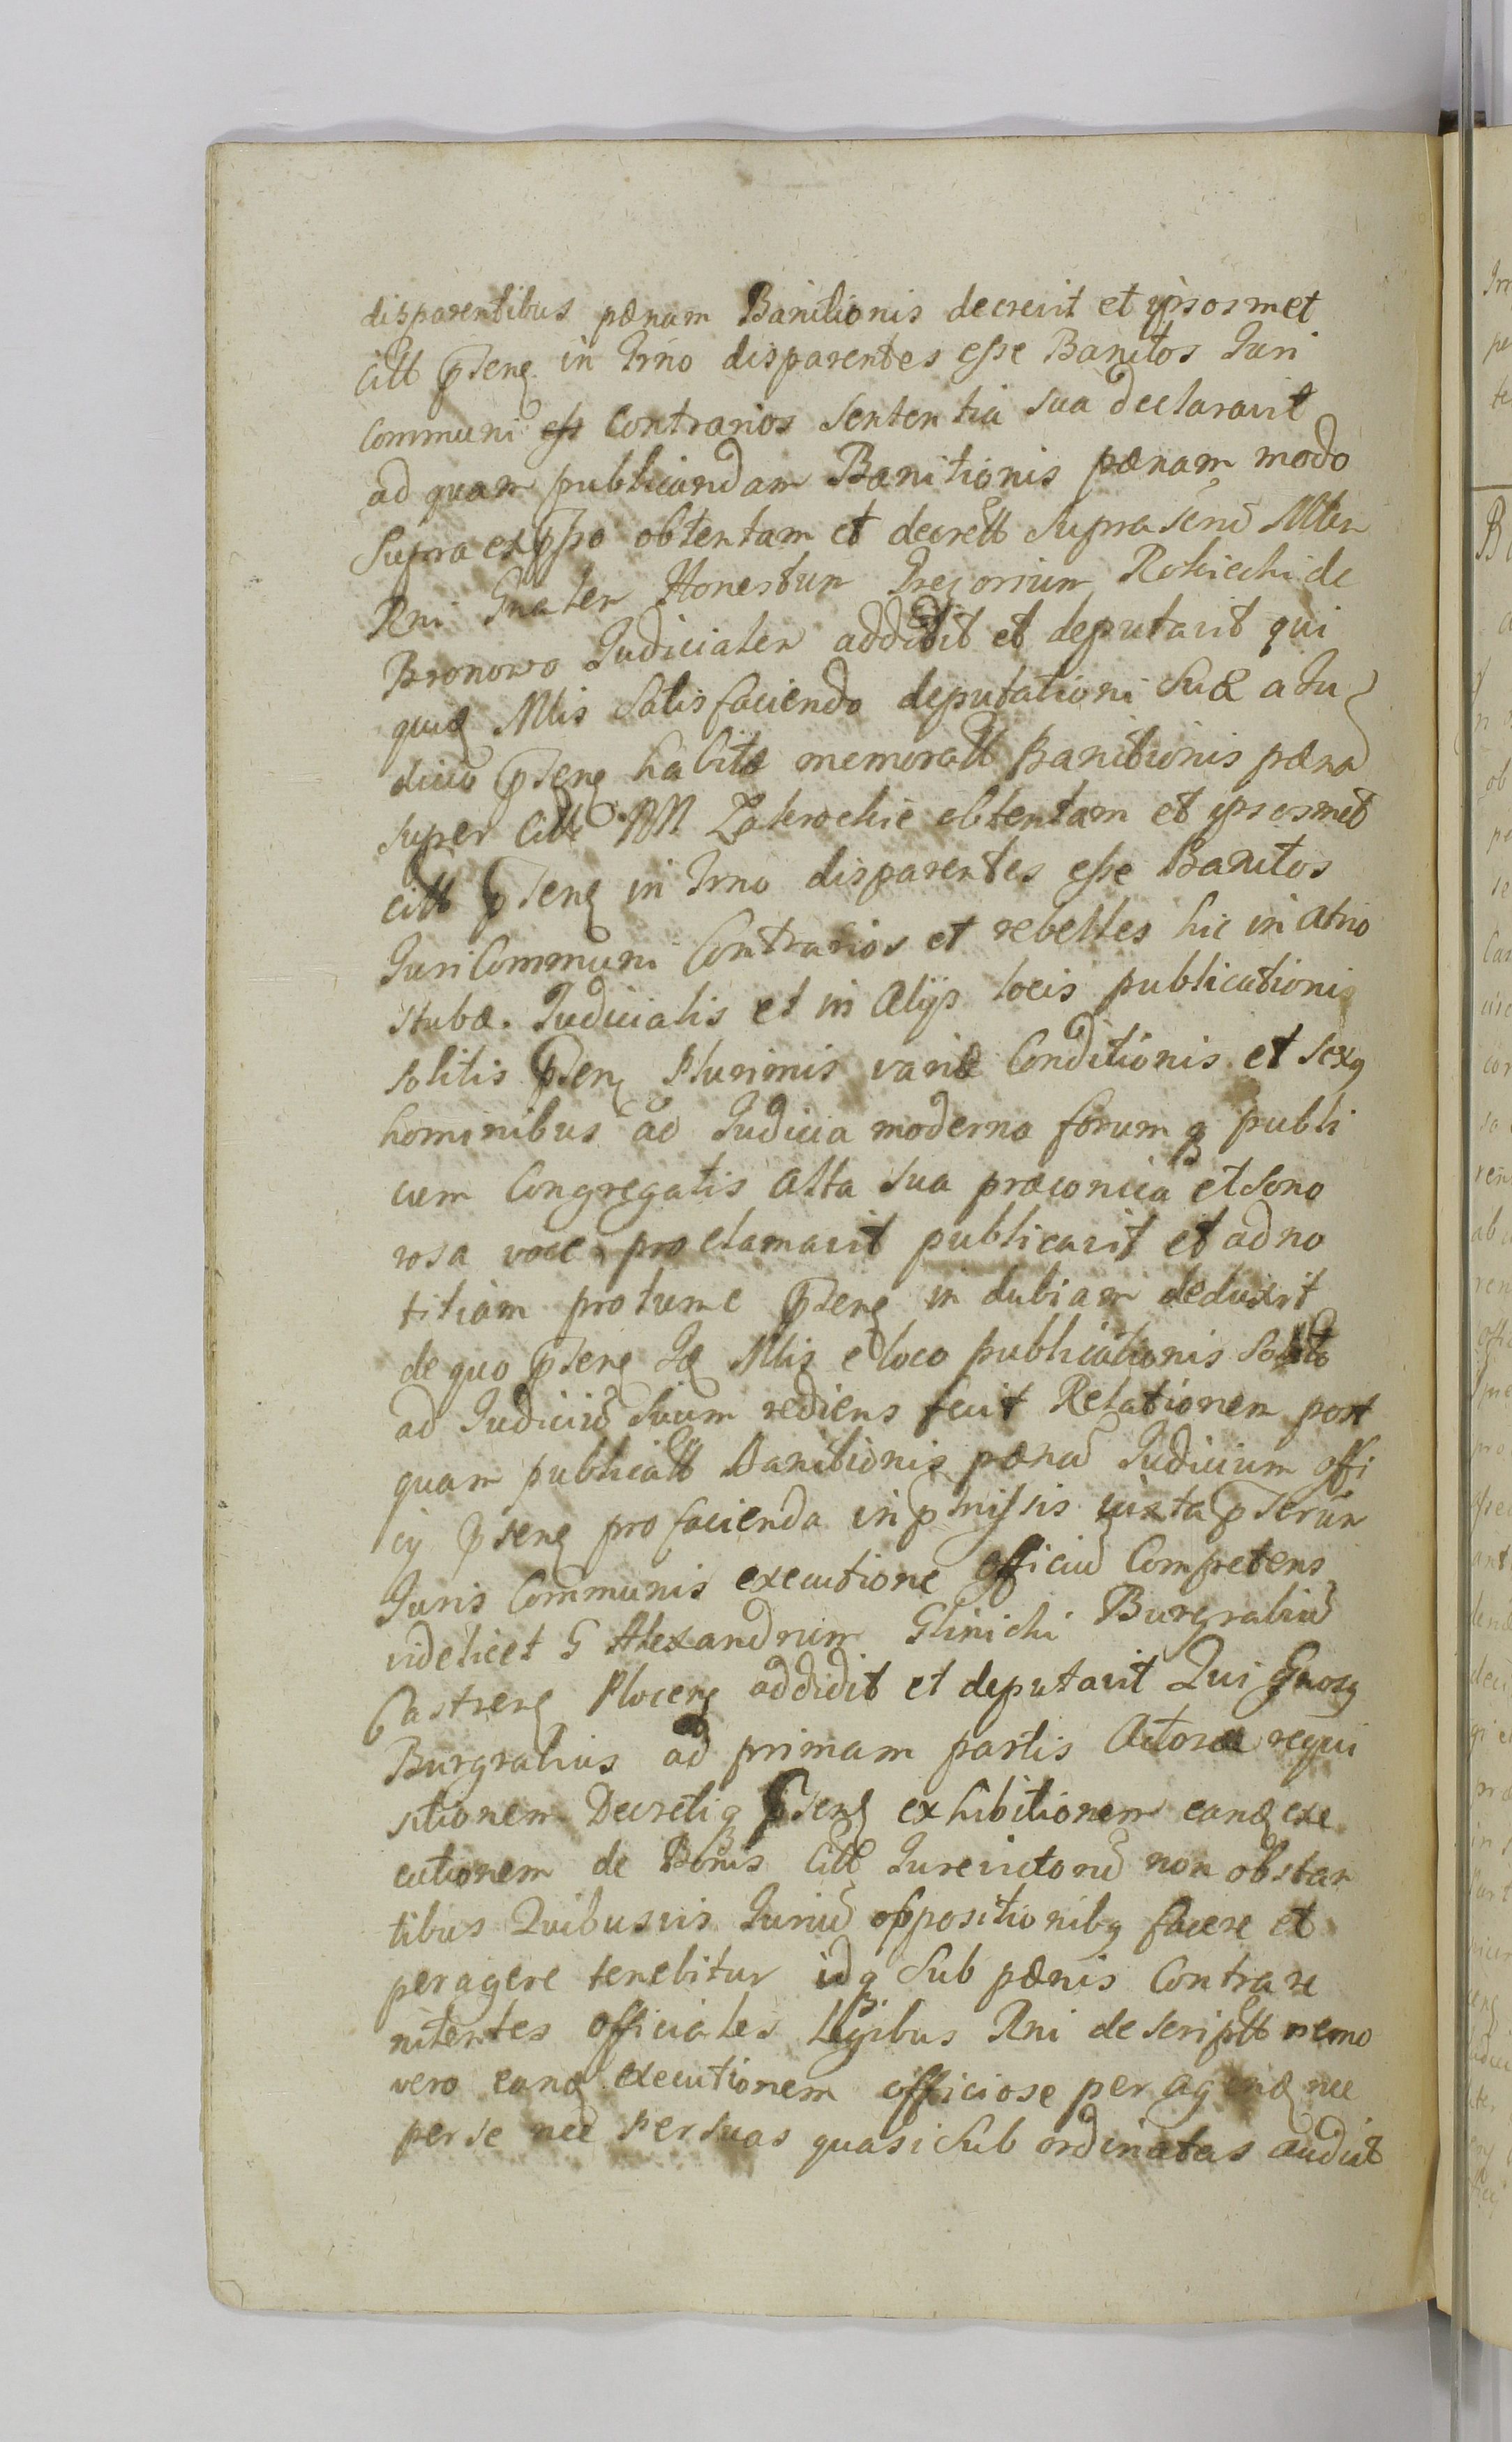 disparentibus pænam Banitionis decrevit et ipsosmet
citt pñtenq in Trno disparentes esse Banitos Juri
communi contrarios sententia sua declaravit
ad quam publicandam Banitionis pænam modo
supra expsso obtentam et decrett supra Mlem
Rni Gnalem Honestum Gregorium Rokicchi de
Bronowo Judicialem addidit et deputavit qui
quid Mlis satisfaciendo deputationi suæ a Ju
dicio pñtenq habitæ memoratt Banitionis pæna
super citt MM Zakrochie obtentam et ipsosmet
citt pñtenq in Trno disparentes esse Banitos
Juri Communi Contrarios et rebelles hic in atrio
stubæ Judicialis et in alijs locis publicationis
solitis pñtenq plurimis variæ Conditionis et sexq
hominibus ad Judicia moderna forumq publi
cum Congregatis alta sua præconica et sono
rosa voce proclamavit publicavit et ad no
titiam protunc pñtenq in dubiam deduxit
de quo pñtenq Id Mlis e loco publicationis solito
ad Judiciū suum rediens fecit Relationem post
quam publicatt Banitionis pænā Judicium offi
cij pñtenq pro facienda in pmissis iuxta pscrūn
Juris Communis executione officiū Competens
videlicet G Alexandrum Glinichi Burgrabiū
Castrenq Plocenq addidit et deputavit Qui Gnosq
Burgrabius ad primam partis Actoreæ requi
sitionem Decretiq pñtenq exhibitionem eanđ exe
cutionem de Bonis citt Jurevictorū non obstan
tibus Quibusvis Juriū oppositionibq facere et
peragere tenebitur idq sub pænis contra re
nitentes officiales legibus Rni descriptt nemo
vero eanđ executionem officiose peragenđ nec
per se nec per suas quasi sub ordinatas audeat